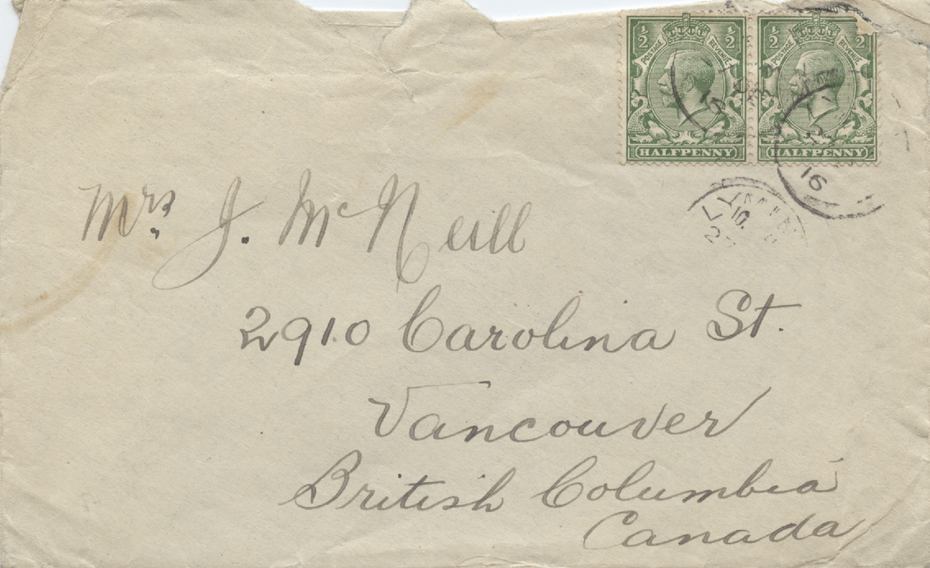 ½ ½ ½ ½
POSTAGE REVENUE POSTAGE REVENUE
HALFPENNY HALFPENNY
16
LYMIN
10.
Mrs. J. McNeill
2910 Carolina St.
Vancouver
British Columbia
Canada